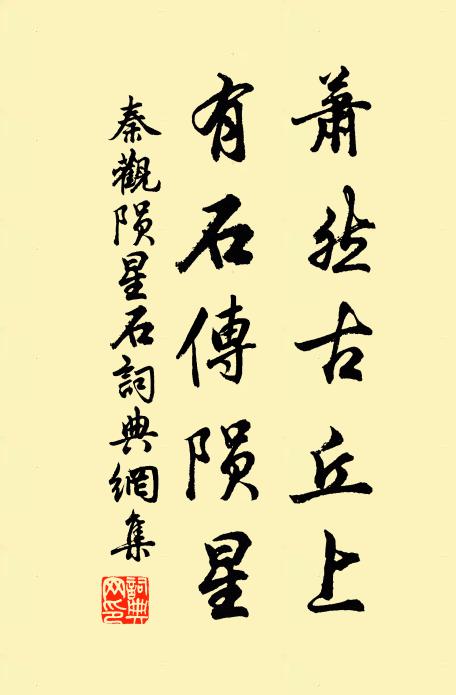 蕭然古丘上
有石傳陨星
秦觀陨星石詞典網集
詞典网印